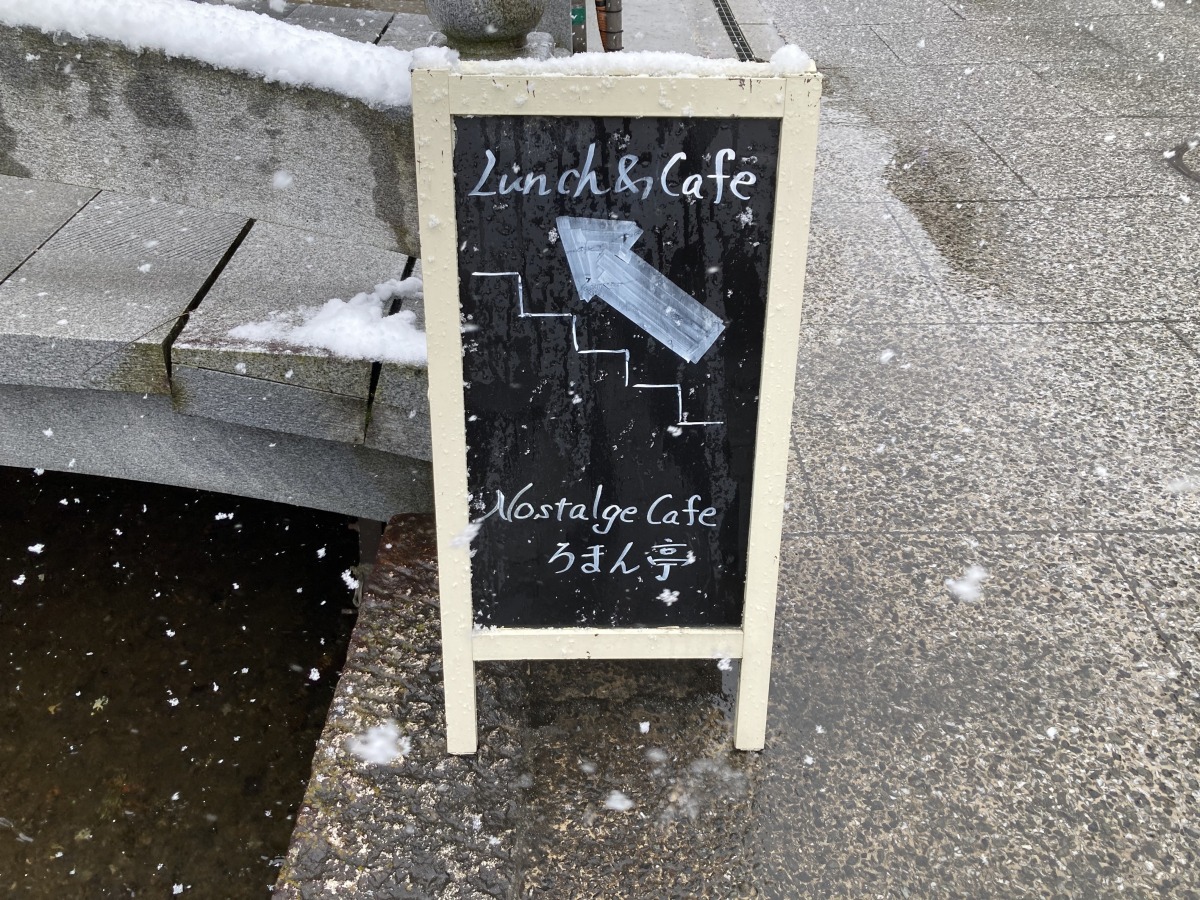 Lunch & Cafe
Nostalge Cafe
ろまん亭